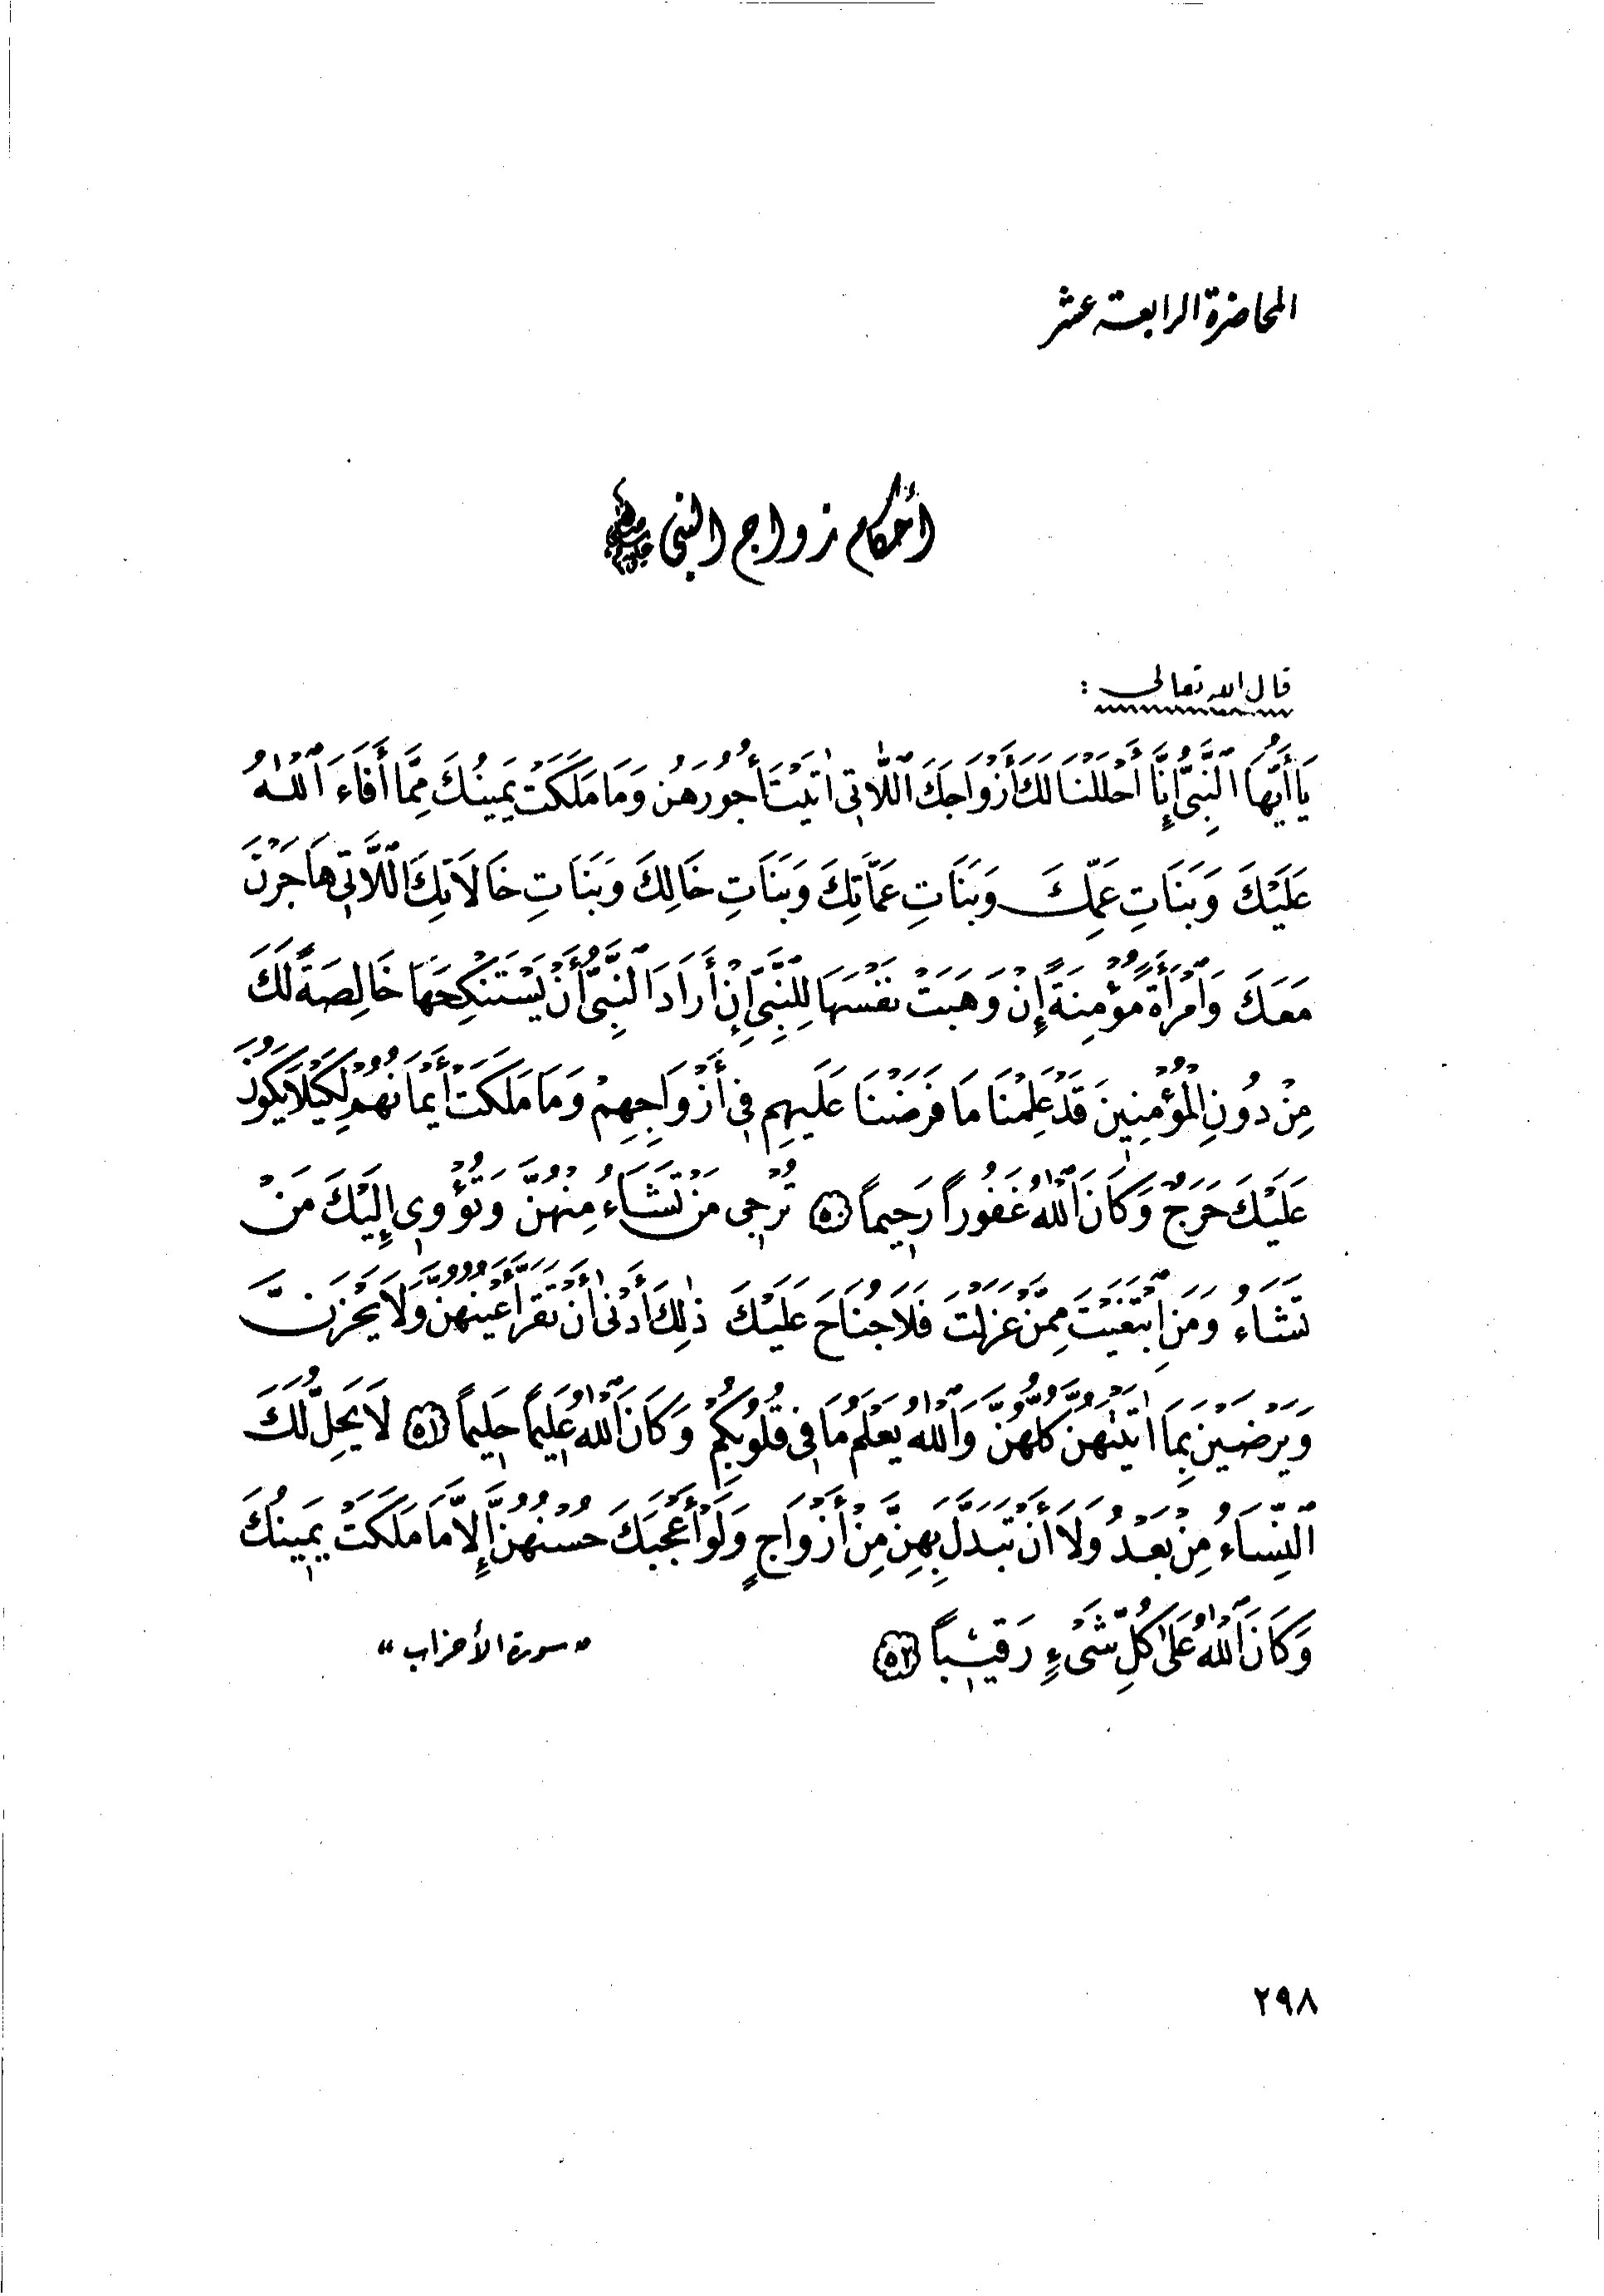 المحاضرة الرابعة عشر
أحكام زواج النبي ﷺ
قال الله تعالى :
يَا أَيُّهَا ٱلنَّبِىُّ إِنَّا أَحْلَلْنَا لَكَ أَزْوَاجَكَ ٱللَّاتِى اٰتَيْتَ أُجُورَهُنَّ وَمَا مَلَكَتْ يَمِينُكَ مِمَّا أَفَاءَ ٱللّٰهُ
عَلَيْكَ وَبَنَاتِ عَمِّكَ وَبَنَاتِ عَمَّاتِكَ وَبَنَاتِ خَالِكَ وَبَنَاتِ خَالَاتِكَ ٱللَّاتِى هَاجَرْنَ
مَعَكَ وَٱمْرَأَةً مُؤْمِنَةً إِنْ وَهَبَتْ نَفْسَهَا لِلنَّبِىِّ إِنْ أَرَادَ ٱلنَّبِىُّ أَنْ يَسْتَنْكِحَهَا خَالِصَةً لَكَ
مِنْ دُونِ الْمُؤْمِنِينَ قَدْ عَلِمْنَا مَا فَرَضْنَا عَلَيْهِمْ فِى أَزْوَاجِهِمْ وَمَا مَلَكَتْ أَيْمَانُهُمْ لِكَيْلَا يَكُونَ
عَلَيْكَ حَرَجٌ وَكَانَ ٱللّٰهُ غَفُوراً رَحِيماً ٥٠ تُرْجِى مَنْ تَشَاءُ مِنْهُنَّ وَتُؤْوِى إِلَيْكَ مَنْ
تَشَاءُ وَمَنِ ٱبْتَغَيْتَ مِمَّنْ عَزَلْتَ فَلَا جُنَاحَ عَلَيْكَ ذٰلِكَ أَدْنٰى أَنْ تَقَرَّ أَعْيُنُهُنَّ وَلَا يَحْزَنَّ
وَيَرْضَيْنَ بِمَا اٰتَيْتَهُنَّ كُلُّهُنَّ وَٱللّٰهُ يَعْلَمُ مَا فِى قُلُوبِكُمْ وَكَانَ ٱللّٰهُ عَلِيماً حَلِيماً ٥١ لَا يَحِلُّ لَكَ
ٱلنِّسَاءُ مِنْ بَعْدُ وَلَا أَنْ تَبَدَّلَ بِهِنَّ مِنْ أَزْوَاجٍ وَلَوْ أَعْجَبَكَ حُسْنُهُنَّ إِلَّا مَا مَلَكَتْ يَمِينُكَ
وَكَانَ ٱللّٰهُ عَلٰى كُلِّ شَىْءٍ رَقِيباً ٥٢ « سورة الأحزاب »
٢٩٨